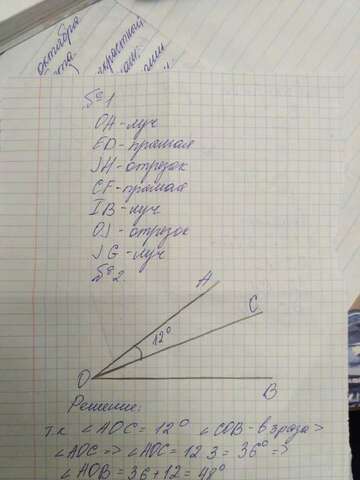 октября
№1
OA-луч
ED-прямая
JH-отрезок
CF-прямая
IB-луч
OJ-отрезок
JG-луч
№2.
A
C
12°
O
B
Решение:
т.к ∠AOC = 12° ∠COB - в 3 раза >
∠AOC => ∠AOC = 12·3 = 36° =>
∠AOB = 36 + 12 = 48°